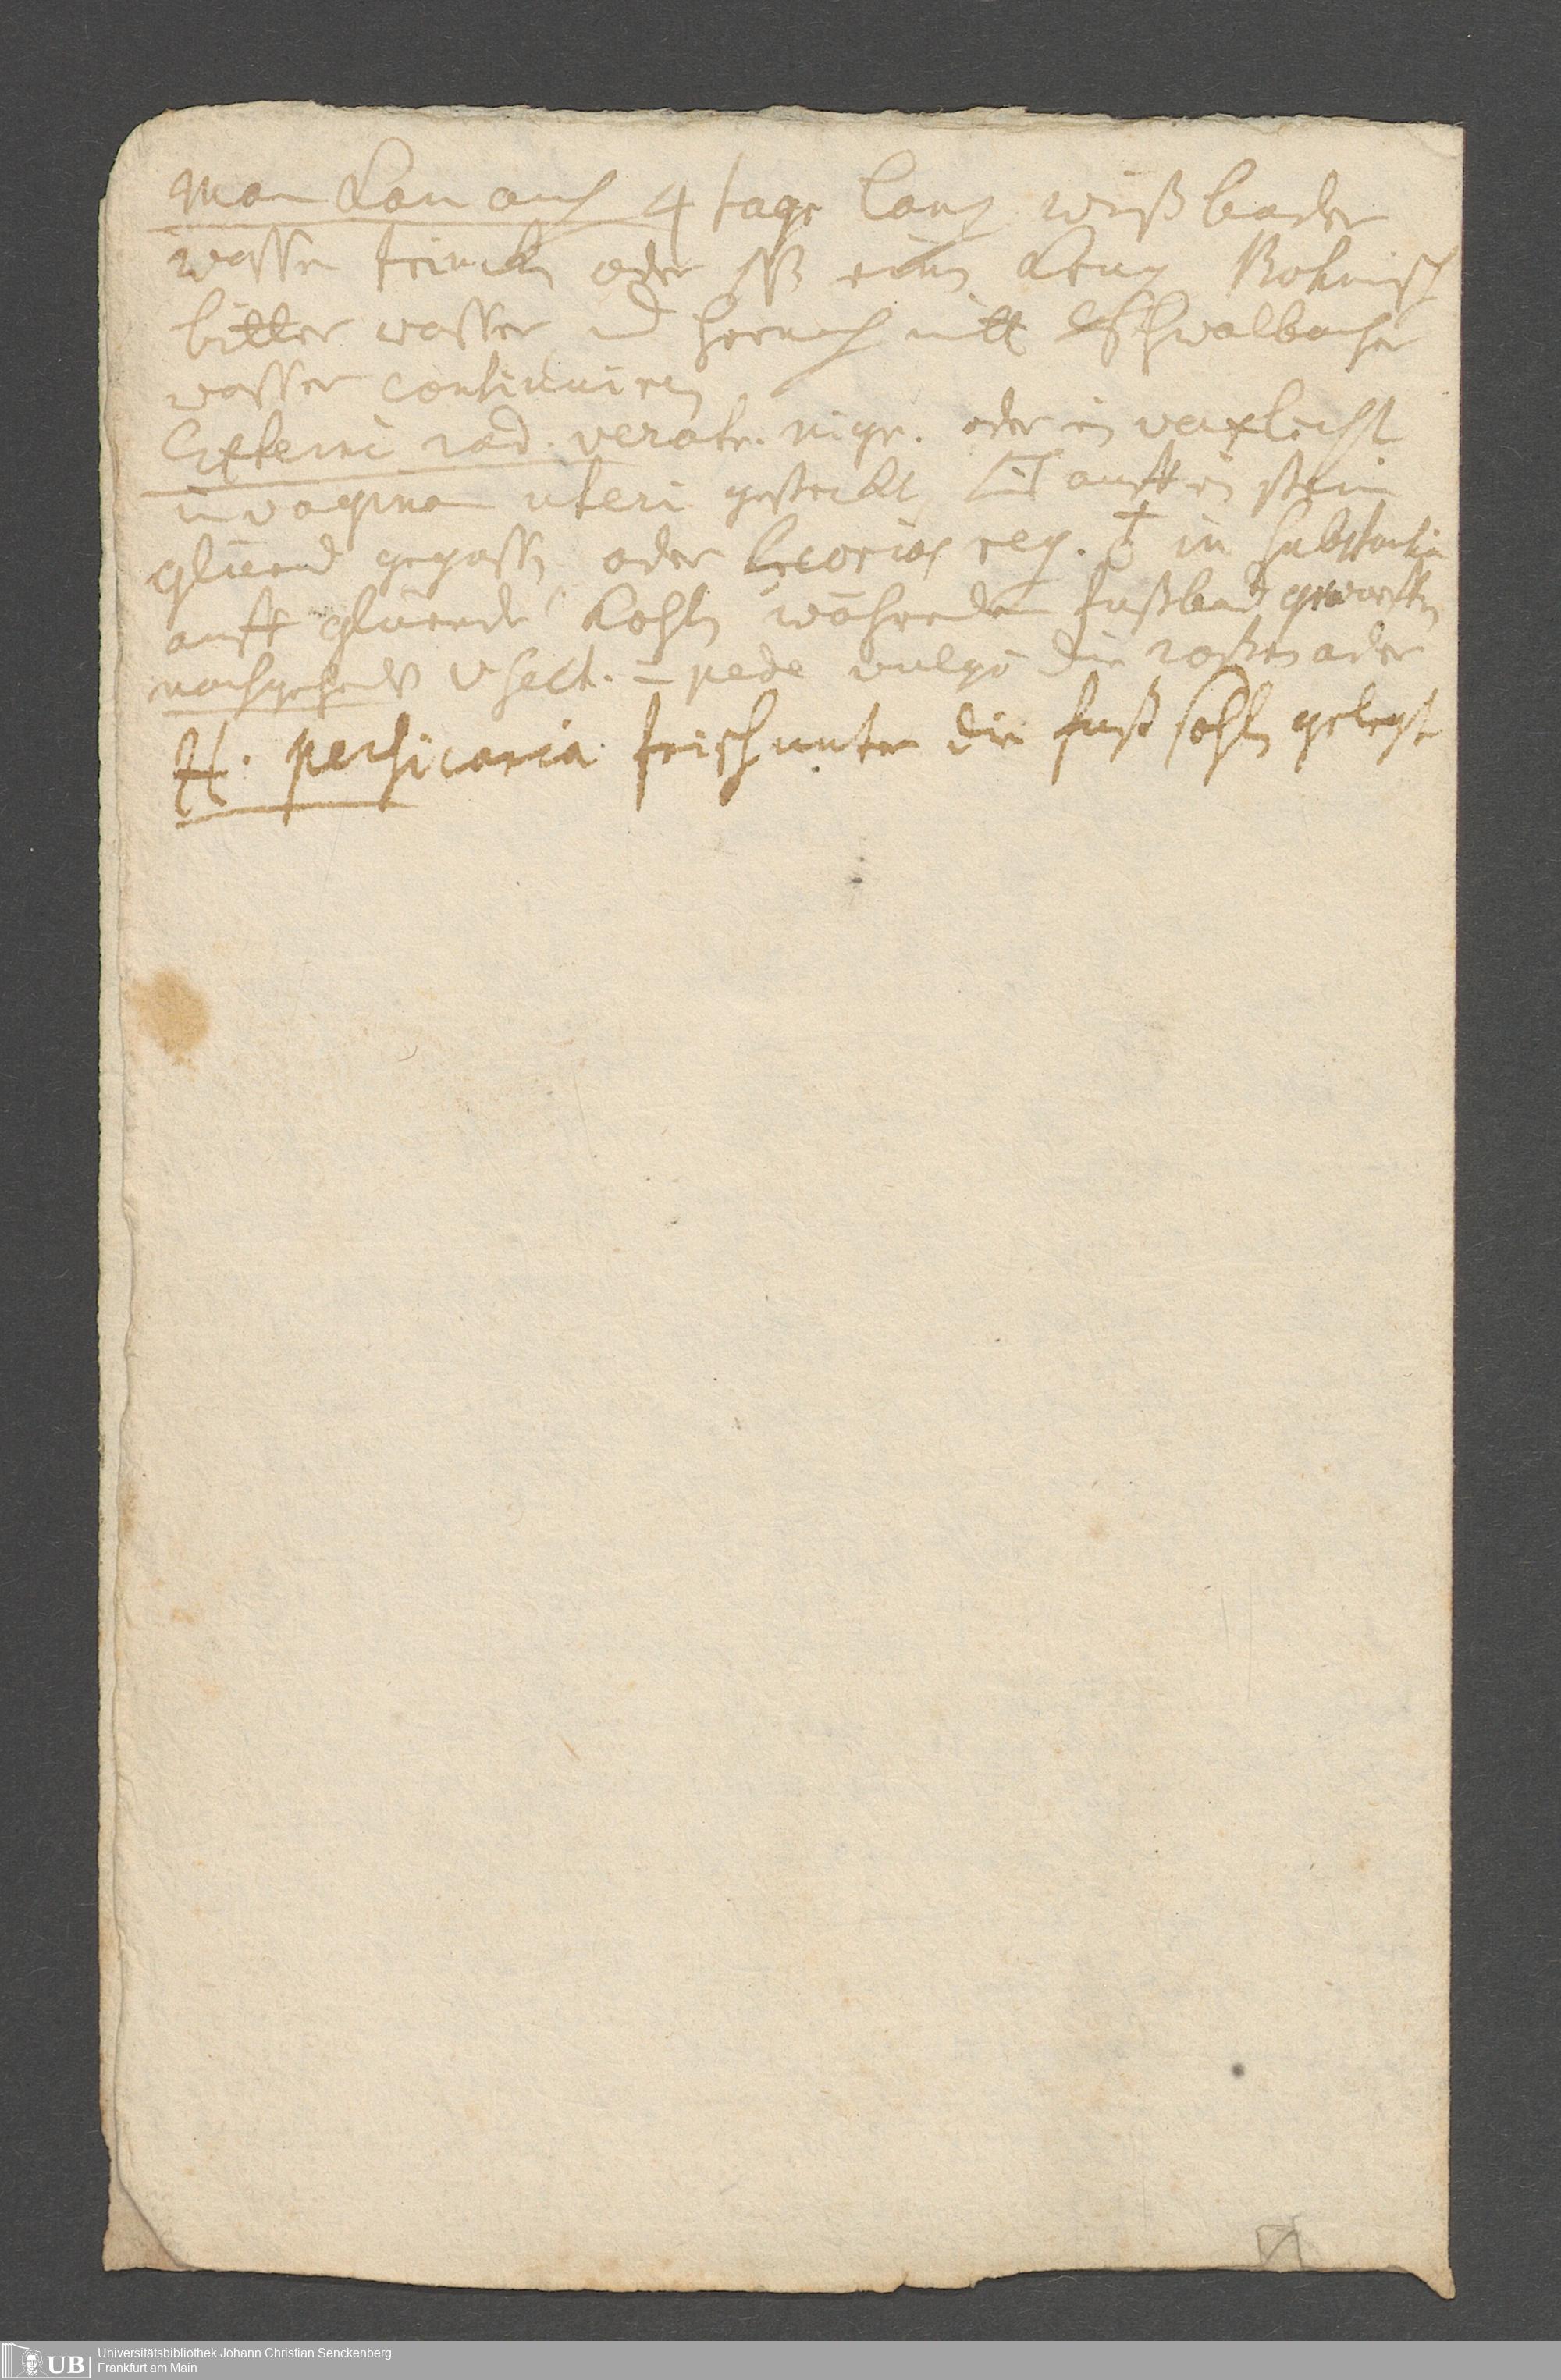 Man kan auch 4 tage lang wißbader
wasser trincken oder einen krug Böhmisch
bitter wasser und hernach mitt Schwalbacher
wasser continuiren
Externè rad. veratr. nigr. oder ein waxliecht
in vaginam uteri gesteckt, auff ein stein
glüend gegossen oder scorias reg. ♁ in substantia
auff glüende kohlen währendem fußbad geworffen
nachgehends V sect. in pede vulgò die roßen ader
H. persicaria frisch unter die fuß sohlen gelegt
UB Universitätsbibliothek Johann Christian Senckenberg
Frankfurt am Main